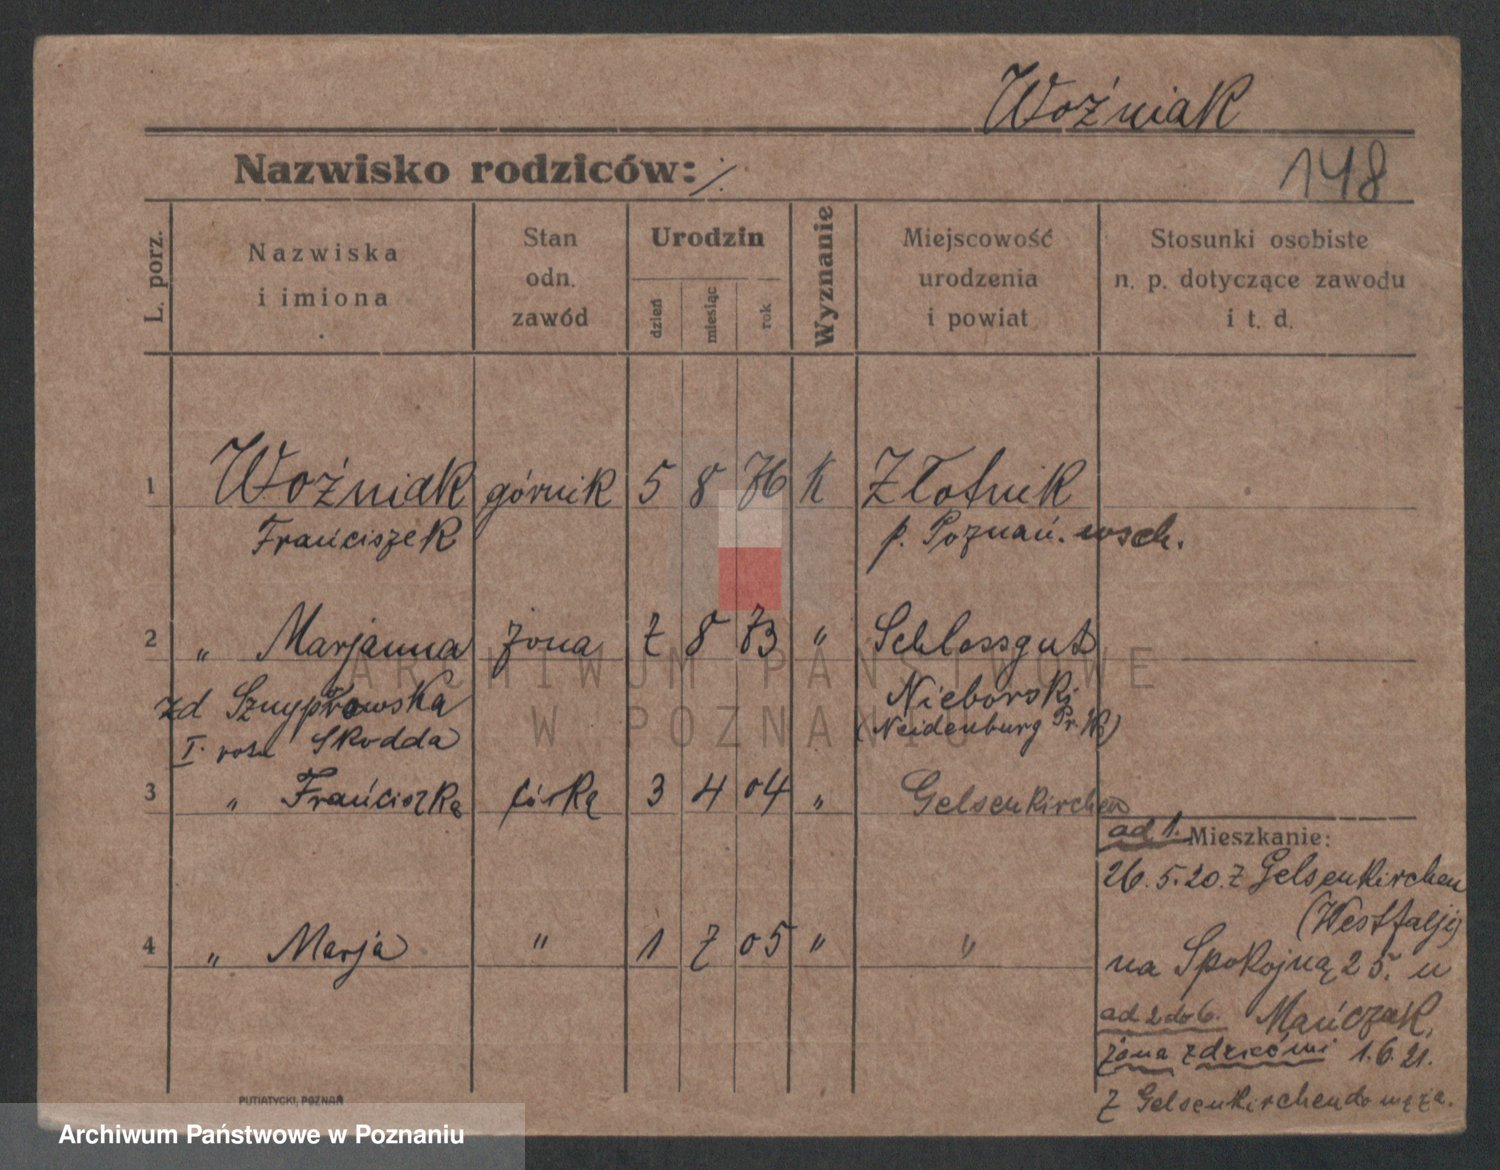 Woźniak
Nazwisko rodziców: ./.
148
L. porz.
Nazwiska
i imiona
Stan
odn.
zawód
Urodzin
dzień
miesiąc
rok
Wyznanie
Miejscowość
urodzenia
i powiat
Stosunki osobiste
n. p. dotyczące zawodu
i t. d.
1 Woźniak górnik 5 8 76 K Złotnik
Frańciszek p. Poznań. wsch.
2 " Marjanna żona 7 8 73 " Schlossgut
zd Nieborski
I. Skodda (Neidenburg Pr.
3 " Frańciszka córka 3 4 04 " Gelsenkirchen
4 " Marja " 1 7 05 " "
ad 1. Mieszkanie:
26.5.20. z Gelsenkirchen
(Westfalji)
na Spokojną 25. u
ad 2 do 6. Mańczak,
żona z dziećmi 1.6.21.
z Gelsenkirchen do męża.
PUTIATYCKI, POZNAŃ
ARCHIWUM PAŃSTWOWE
W POZNANIU
Archiwum Państwowe w Poznaniu